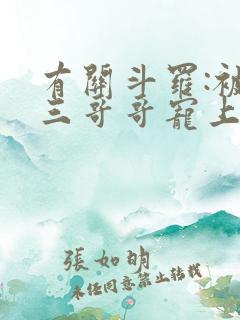 有關斗羅:被
三哥哥寵上
張如明
未经同意禁止转载